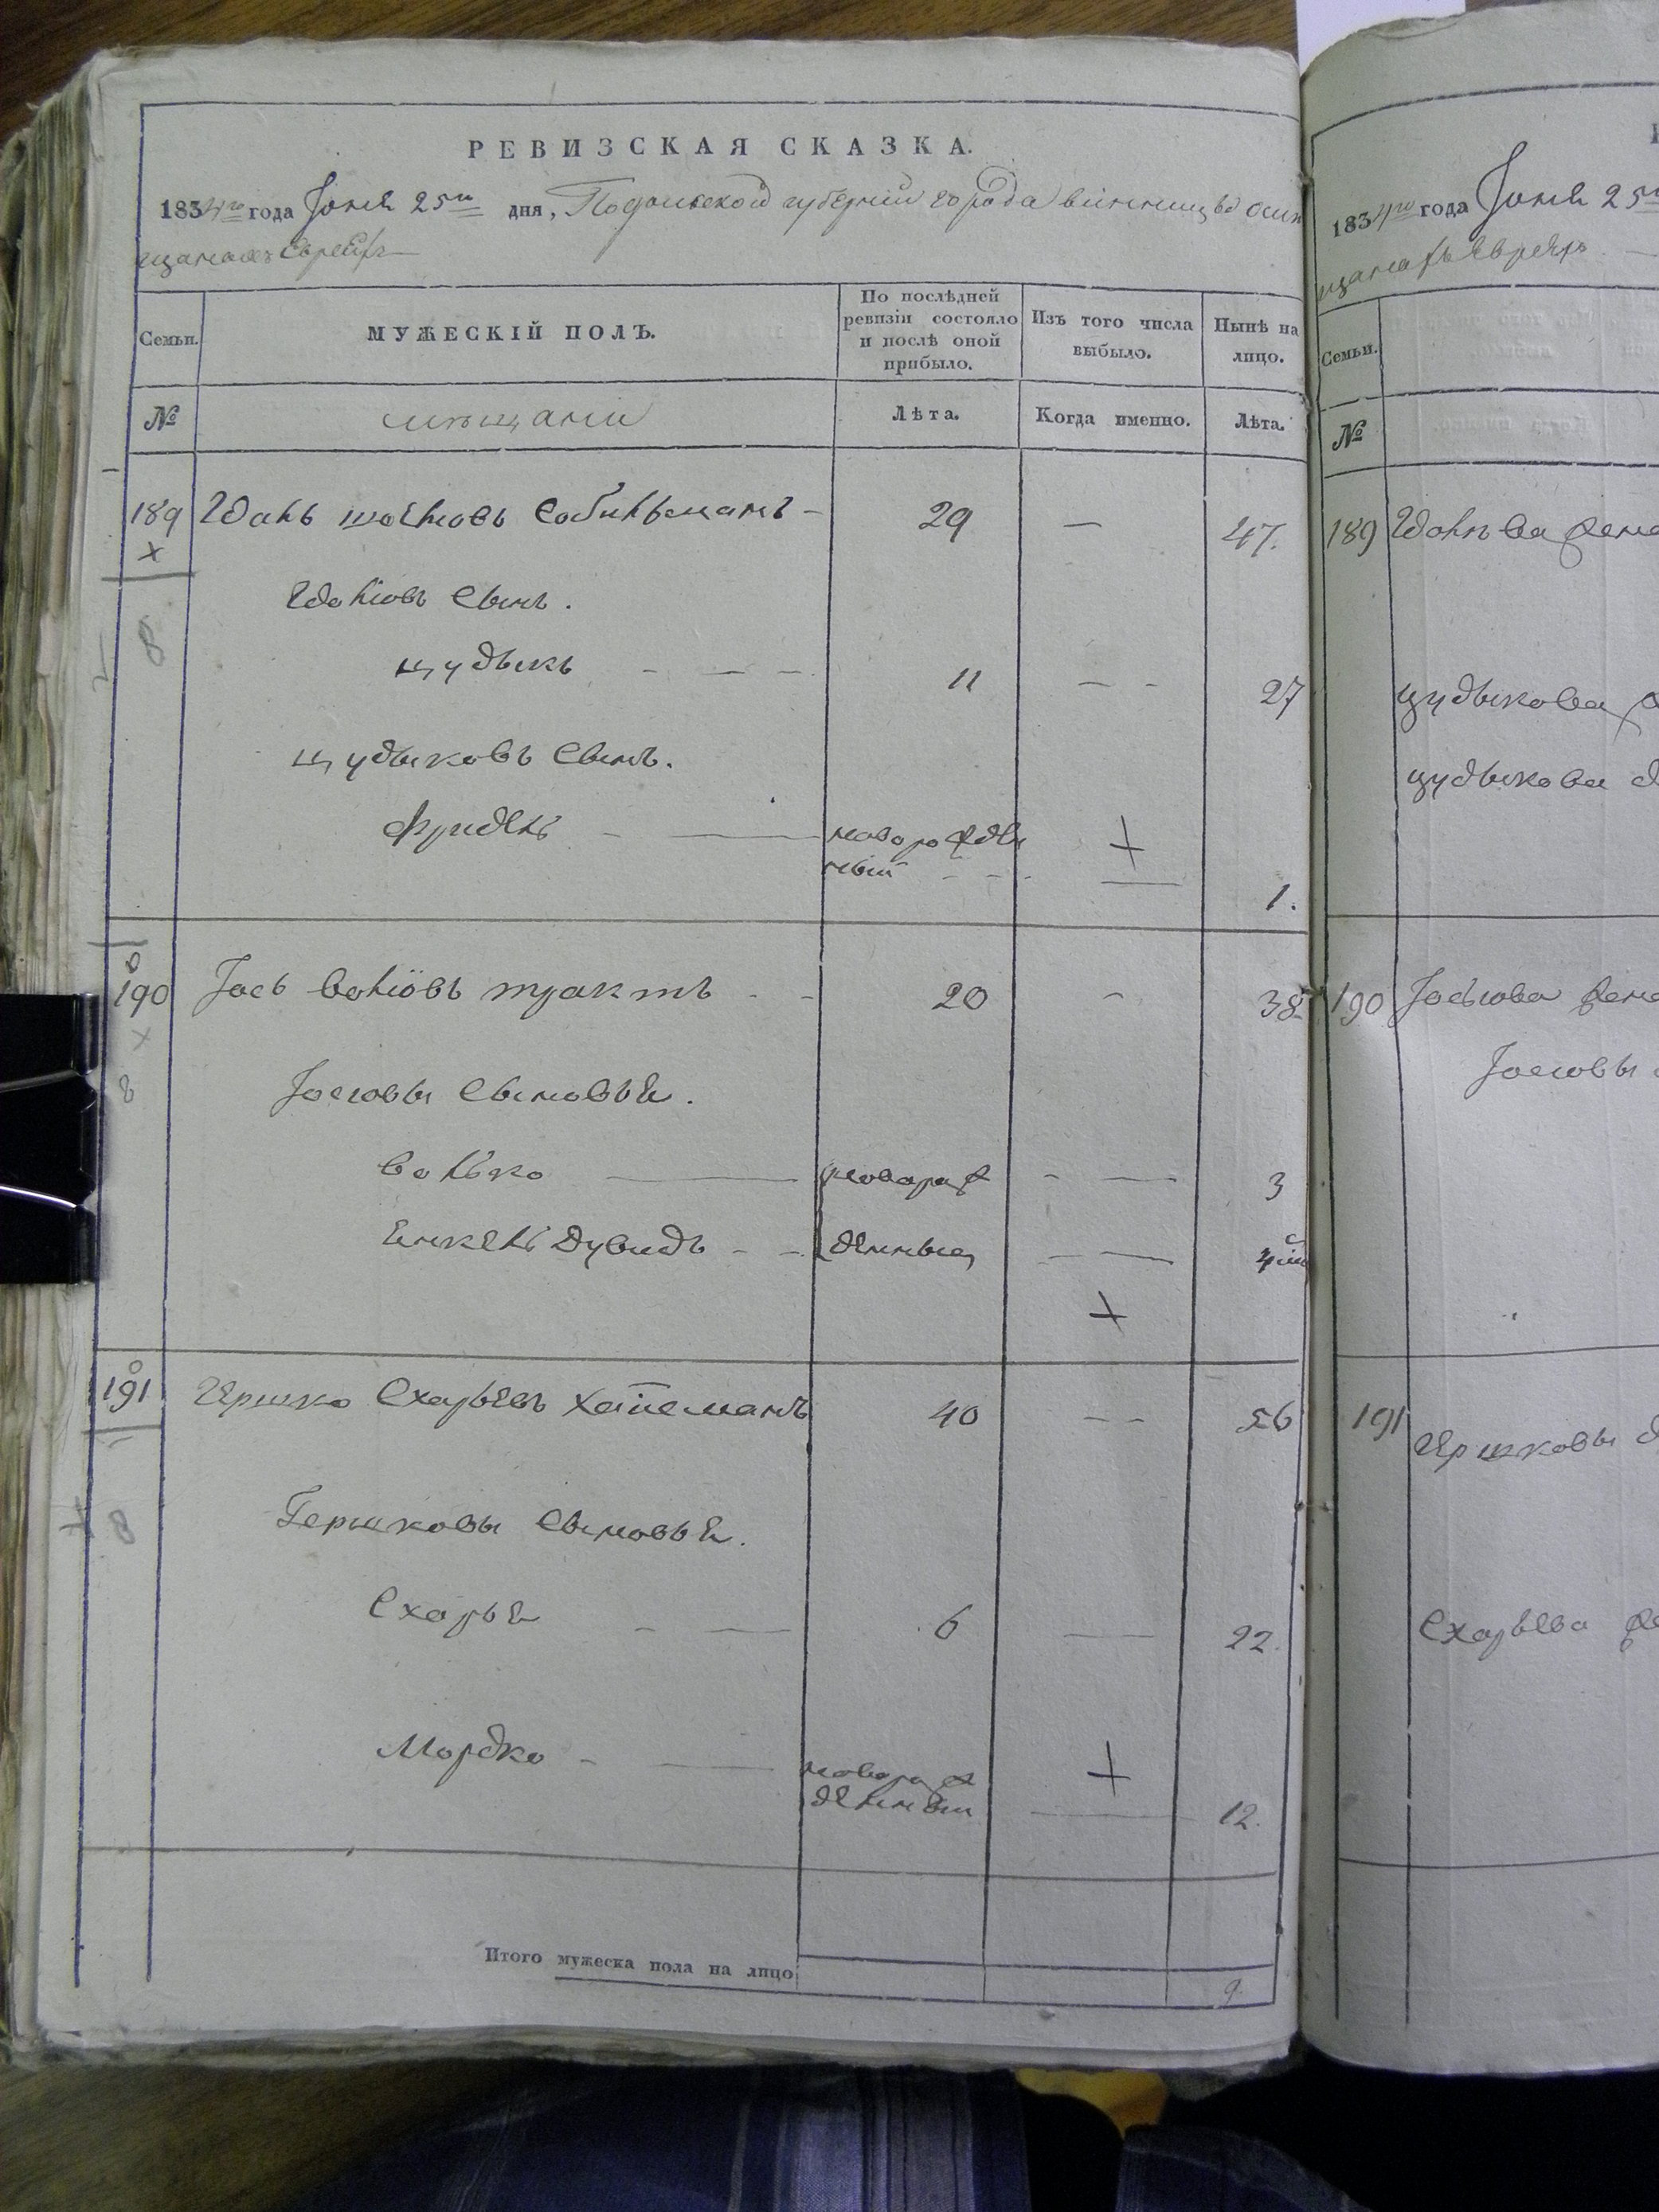 РЕВИЗСКАЯ СКАЗКА.
1834го года Іюня 25го дня, Подольской губерніи города винницы о
щанахъ Евреяхъ
Семьи. МУЖЕСКІЙ ПОЛЪ. По послѣдней ревизіи состояло и послѣ оной прибыло. Изъ того числа выбыло. Нынѣ на лицо.
№ мѣщани Лѣта. Когда именно. Лѣта.
189 29 — 47.
сынъ.
8
цудыкъ - - - 11 - - 27
цудыковъ сынъ.
фридель - — новорожде
нный - - - 1.
190 Іось волиовъ трактъ - - 20 - 38
Іосіовы сыновье.
волько — новорож - — 3
дувидъ - - денныи - —
191 Гершко Схарьевъ 40 - - 56
8
Гершковы сыновье.
Схарье - — 6 — 22.
Мордко - — новорож
денныи — 12.
Итого мужеска пола на лицо 9.
1834го года Іюня 25го
щанахъ Евреяхъ
Семьи.
№
189
цудыкова
цудыкова
190 Іосьіова
Іосіовы
191 Гершковы
Схарьева